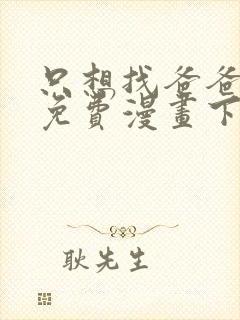 只想找爸爸
免費漫畫下
耿先生